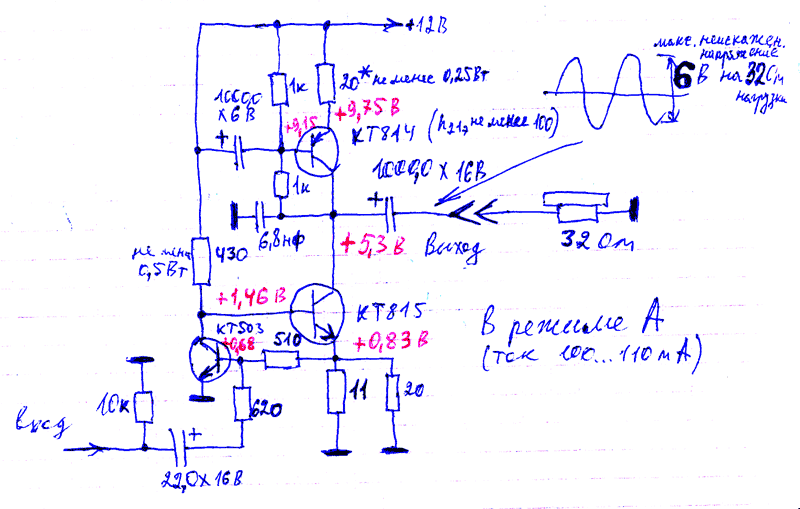 +12В
макс. неискажен.
напряжение
6 В на 32 Ом
нагрузки
1к
20* не менее 0,25Вт
1000,0
х 6В
+9,75 В
+9,15
КТ814 (h21э не менее 100)
1к
1000,0 х 16В
6,8нф
+5,3 В
Выход
32 Ом
не менее
0,5Вт
430
+1,46 В
КТ815
КТ503
+0,68
510
+0,83 В
В режиме А
(ток 100...110 мА)
10к
620
11
20
вход
22,0х16В